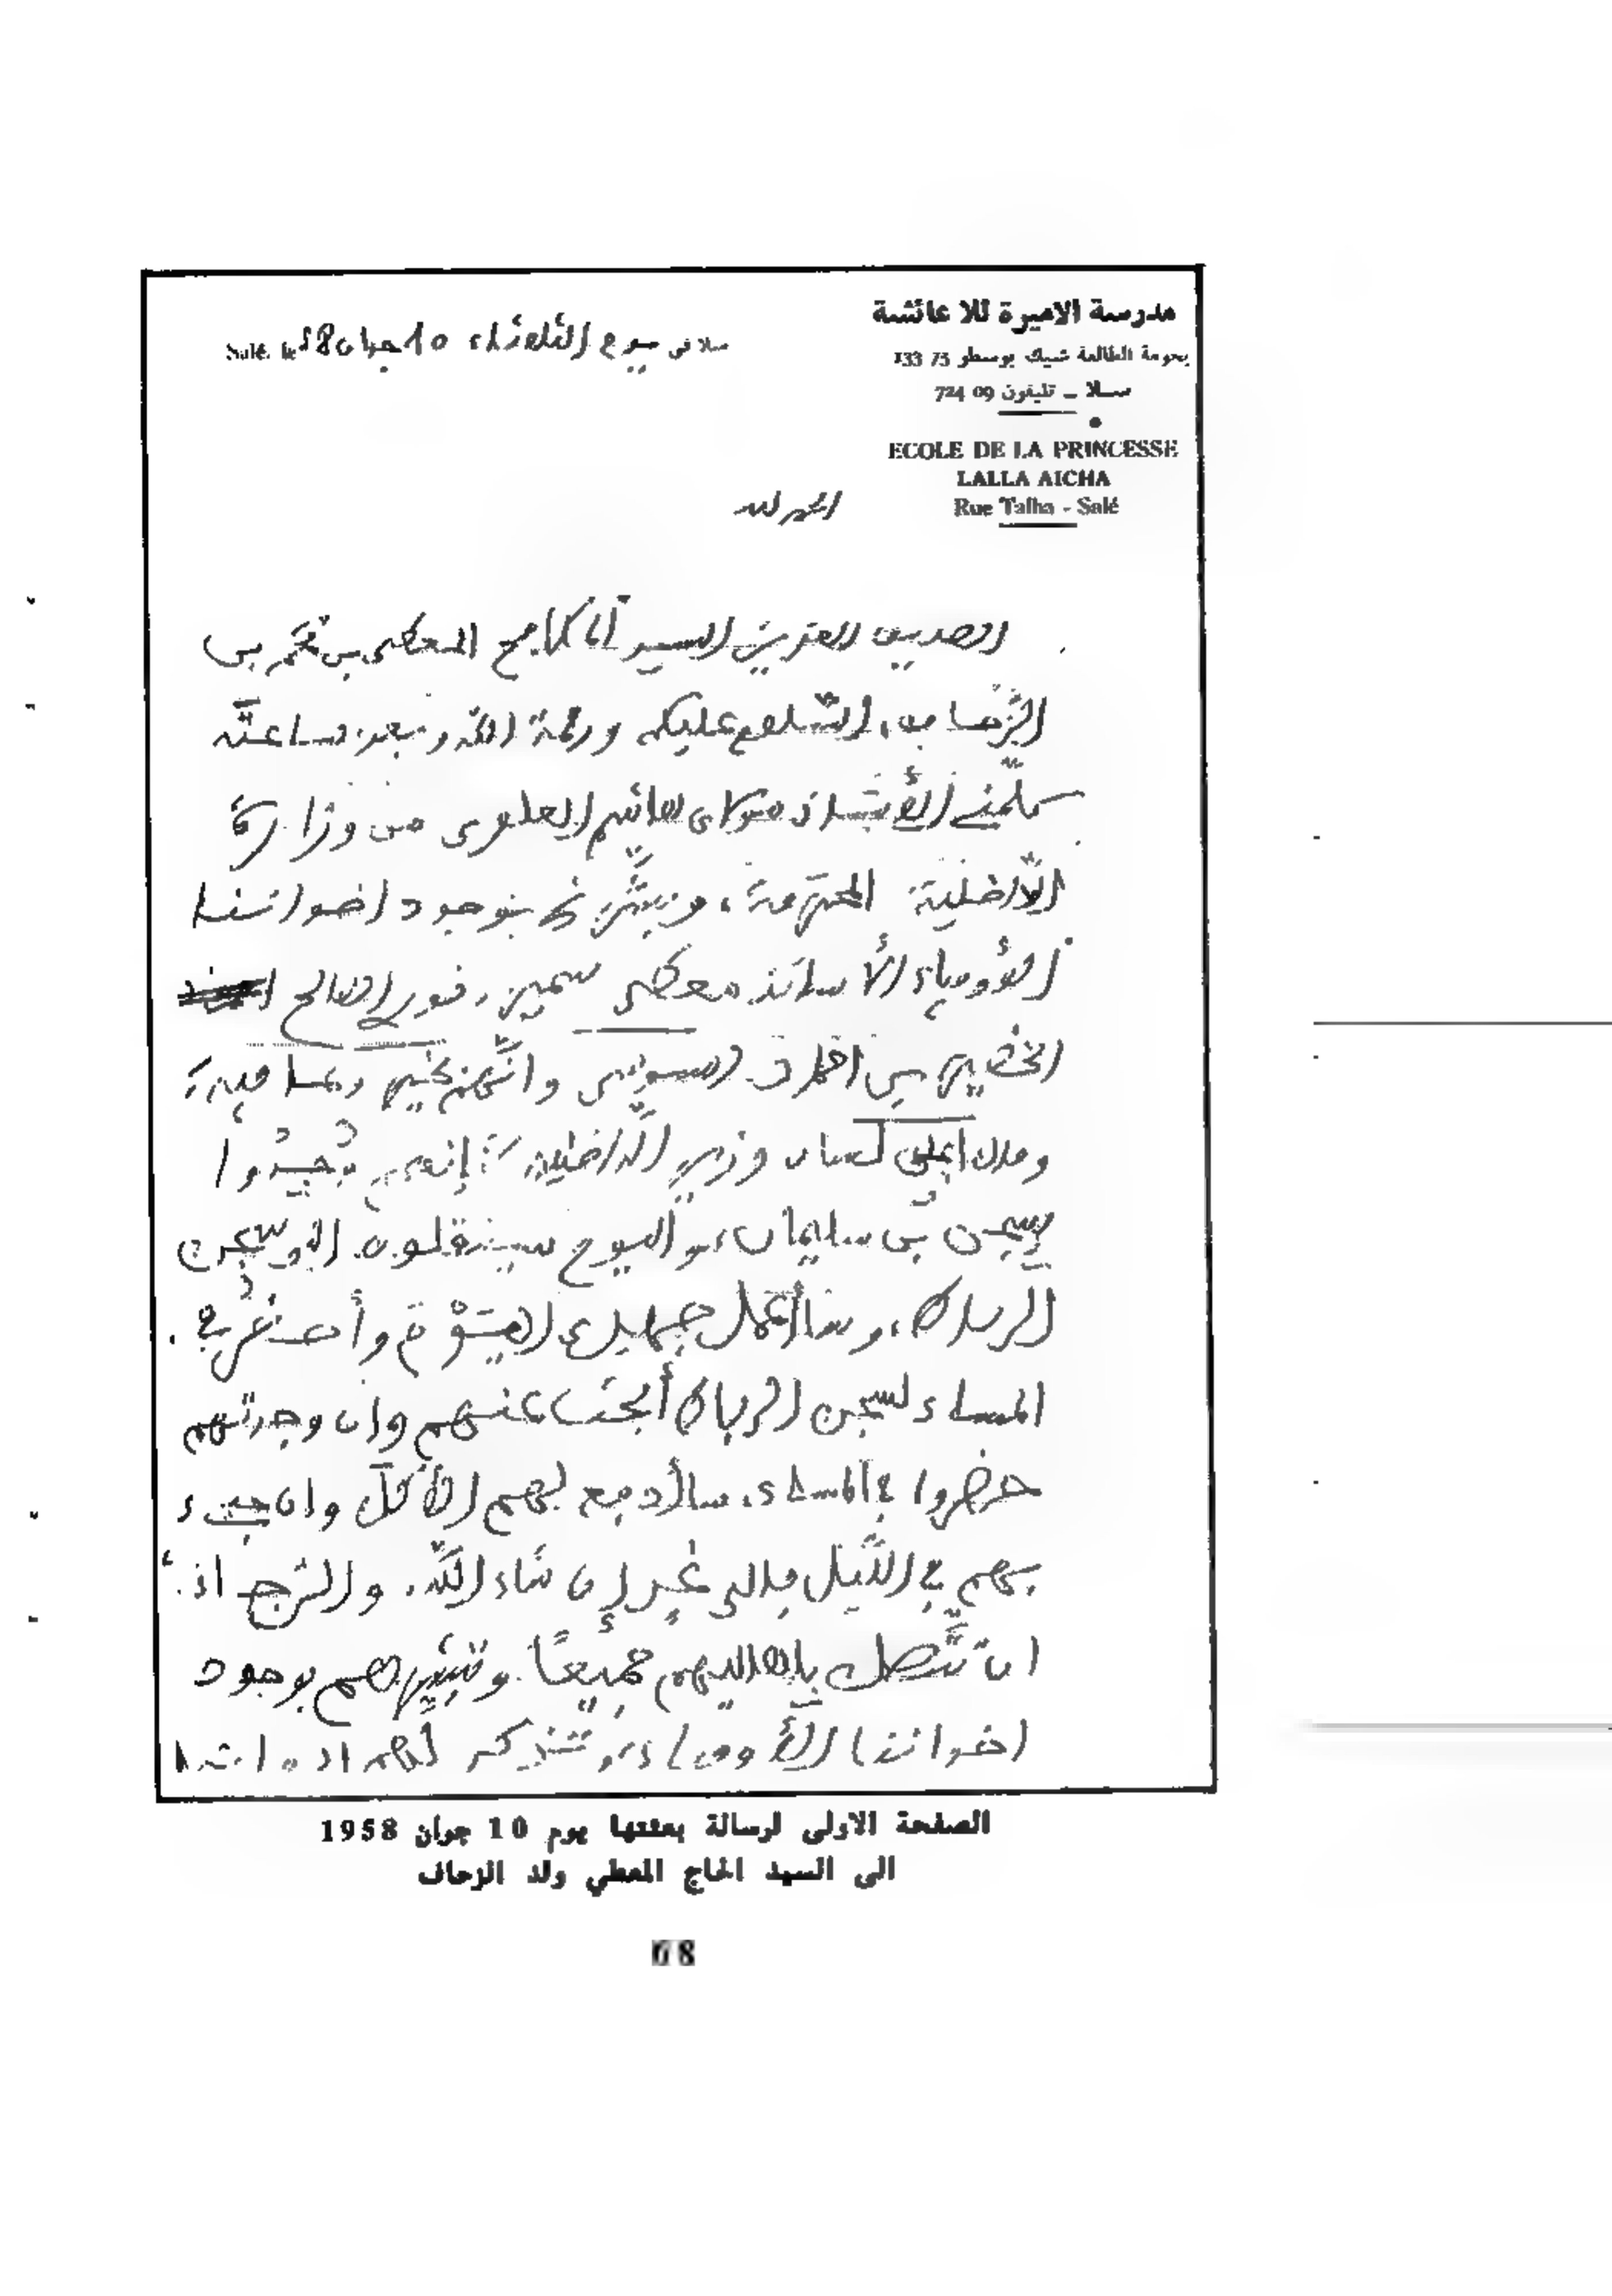 مدرسة الاميرة للا عائشة
بحومة الطالعة شيك بوسطو 75 133
سلا ـ تليفون 09 724
ECOLE DE LA PRINCESSE
LALLA AICHA
Rue Talha - Salé
سلا في يوم الثلاثاء 10 جوان 58 Salé, le
الحمد لله
الصديق العزيز السيد الحاج المعطى بن محمد بن
السلام عليكم ورحمة الله وبعد فساعته
كلمني الأستاذ مولاى هاشم العلوى من وزارة
الداخلية المحترمة، وبشرني بوجود اخواننا
الأوفياء الأساتذ معطى سمير، نور الصالح
الخضير بن احمد السويسى وانهم بخير وعافية
وقال لي لسان وزير الداخلية إنهم
بسجن بن سليمان، واليوم سينقلون الى سجن
الرباط، وسأعمل جهدي اليوم وأحد في
المساء لسجن الرباط أبحث عنهم وان وجدتهم
حضروا في المساء، سأدفع لهم الأكل وان جيء
بهم في الليل فالى غد إن شاء الله. والرجاء
ان تتصل بأهاليهم جميعًا وتبشرهم بوجود
اخواننا الأوفياء، وتذكر لهم
الصفحة الاولى لرسالة بعثتها يوم 10 جوان 1958
الى السيد الحاج المعطي ولد الزحاف
68